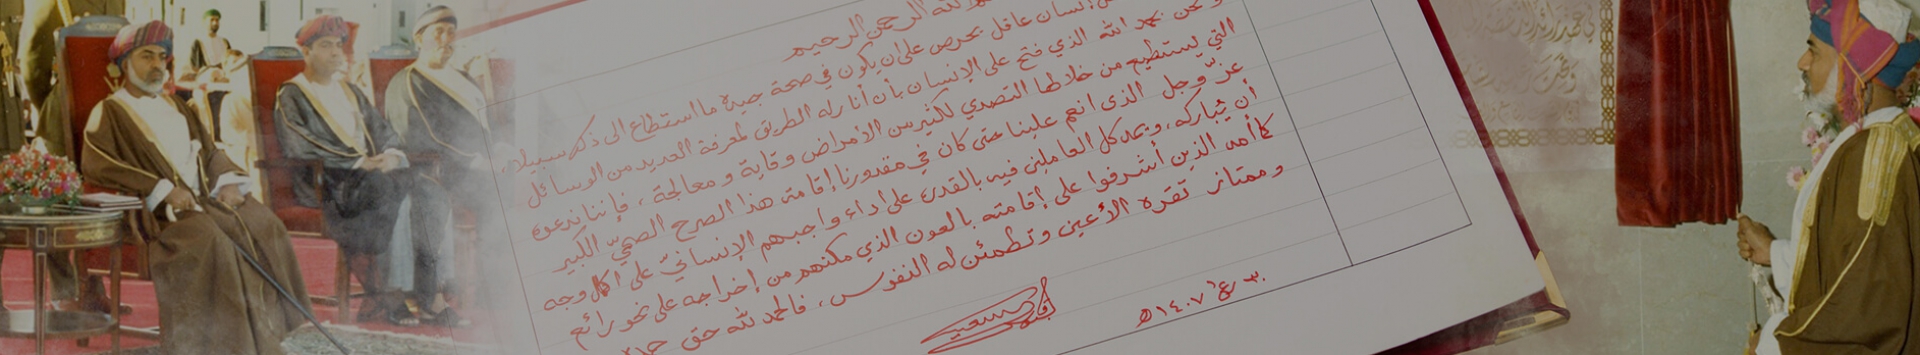 الله الرحمن الرحيم
إنسان عاقل يحرص على أن يكون في صحة جيدة ما استطاع إلى ذلك سبيلا،
ونحن نحمد الله الذي فتح على الإنسان بأن أنار له الطريق لمعرفة العديد من الوسائل
التي يستطيع من خلالها التصدي للكثير من الأمراض وقاية ومعالجة، فإننا ندعو
عز وجل الذي أنعم علينا حتى كان في مقدورنا إقامة هذا الصرح الصحي الكبير
أن يباركه، ويمد كل العاملين فيه بالقدرة على أداء واجبهم الإنساني على أكمل وجه
كما أمد الذين أشرفوا على إقامته بالعون الذي مكنهم من إخراجه على نحو رائع
وممتاز تقره الأعين وتطمئن له النفوس، فالحمد لله حق
١٤٠٧هـ